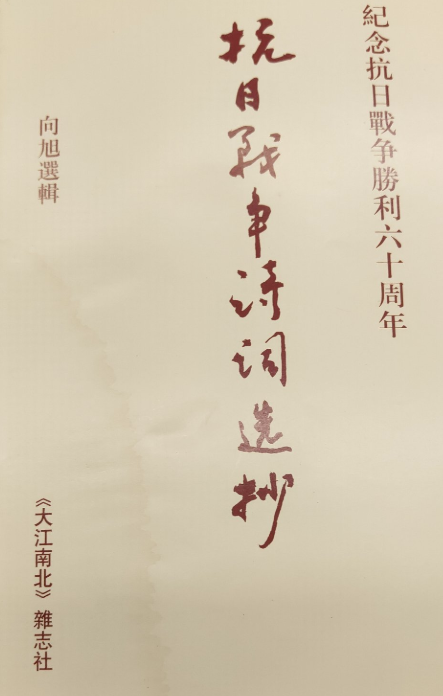 紀念抗日戰争勝利六十周年
抗日战争诗词选抄
向旭選輯
《大江南北》雜志社